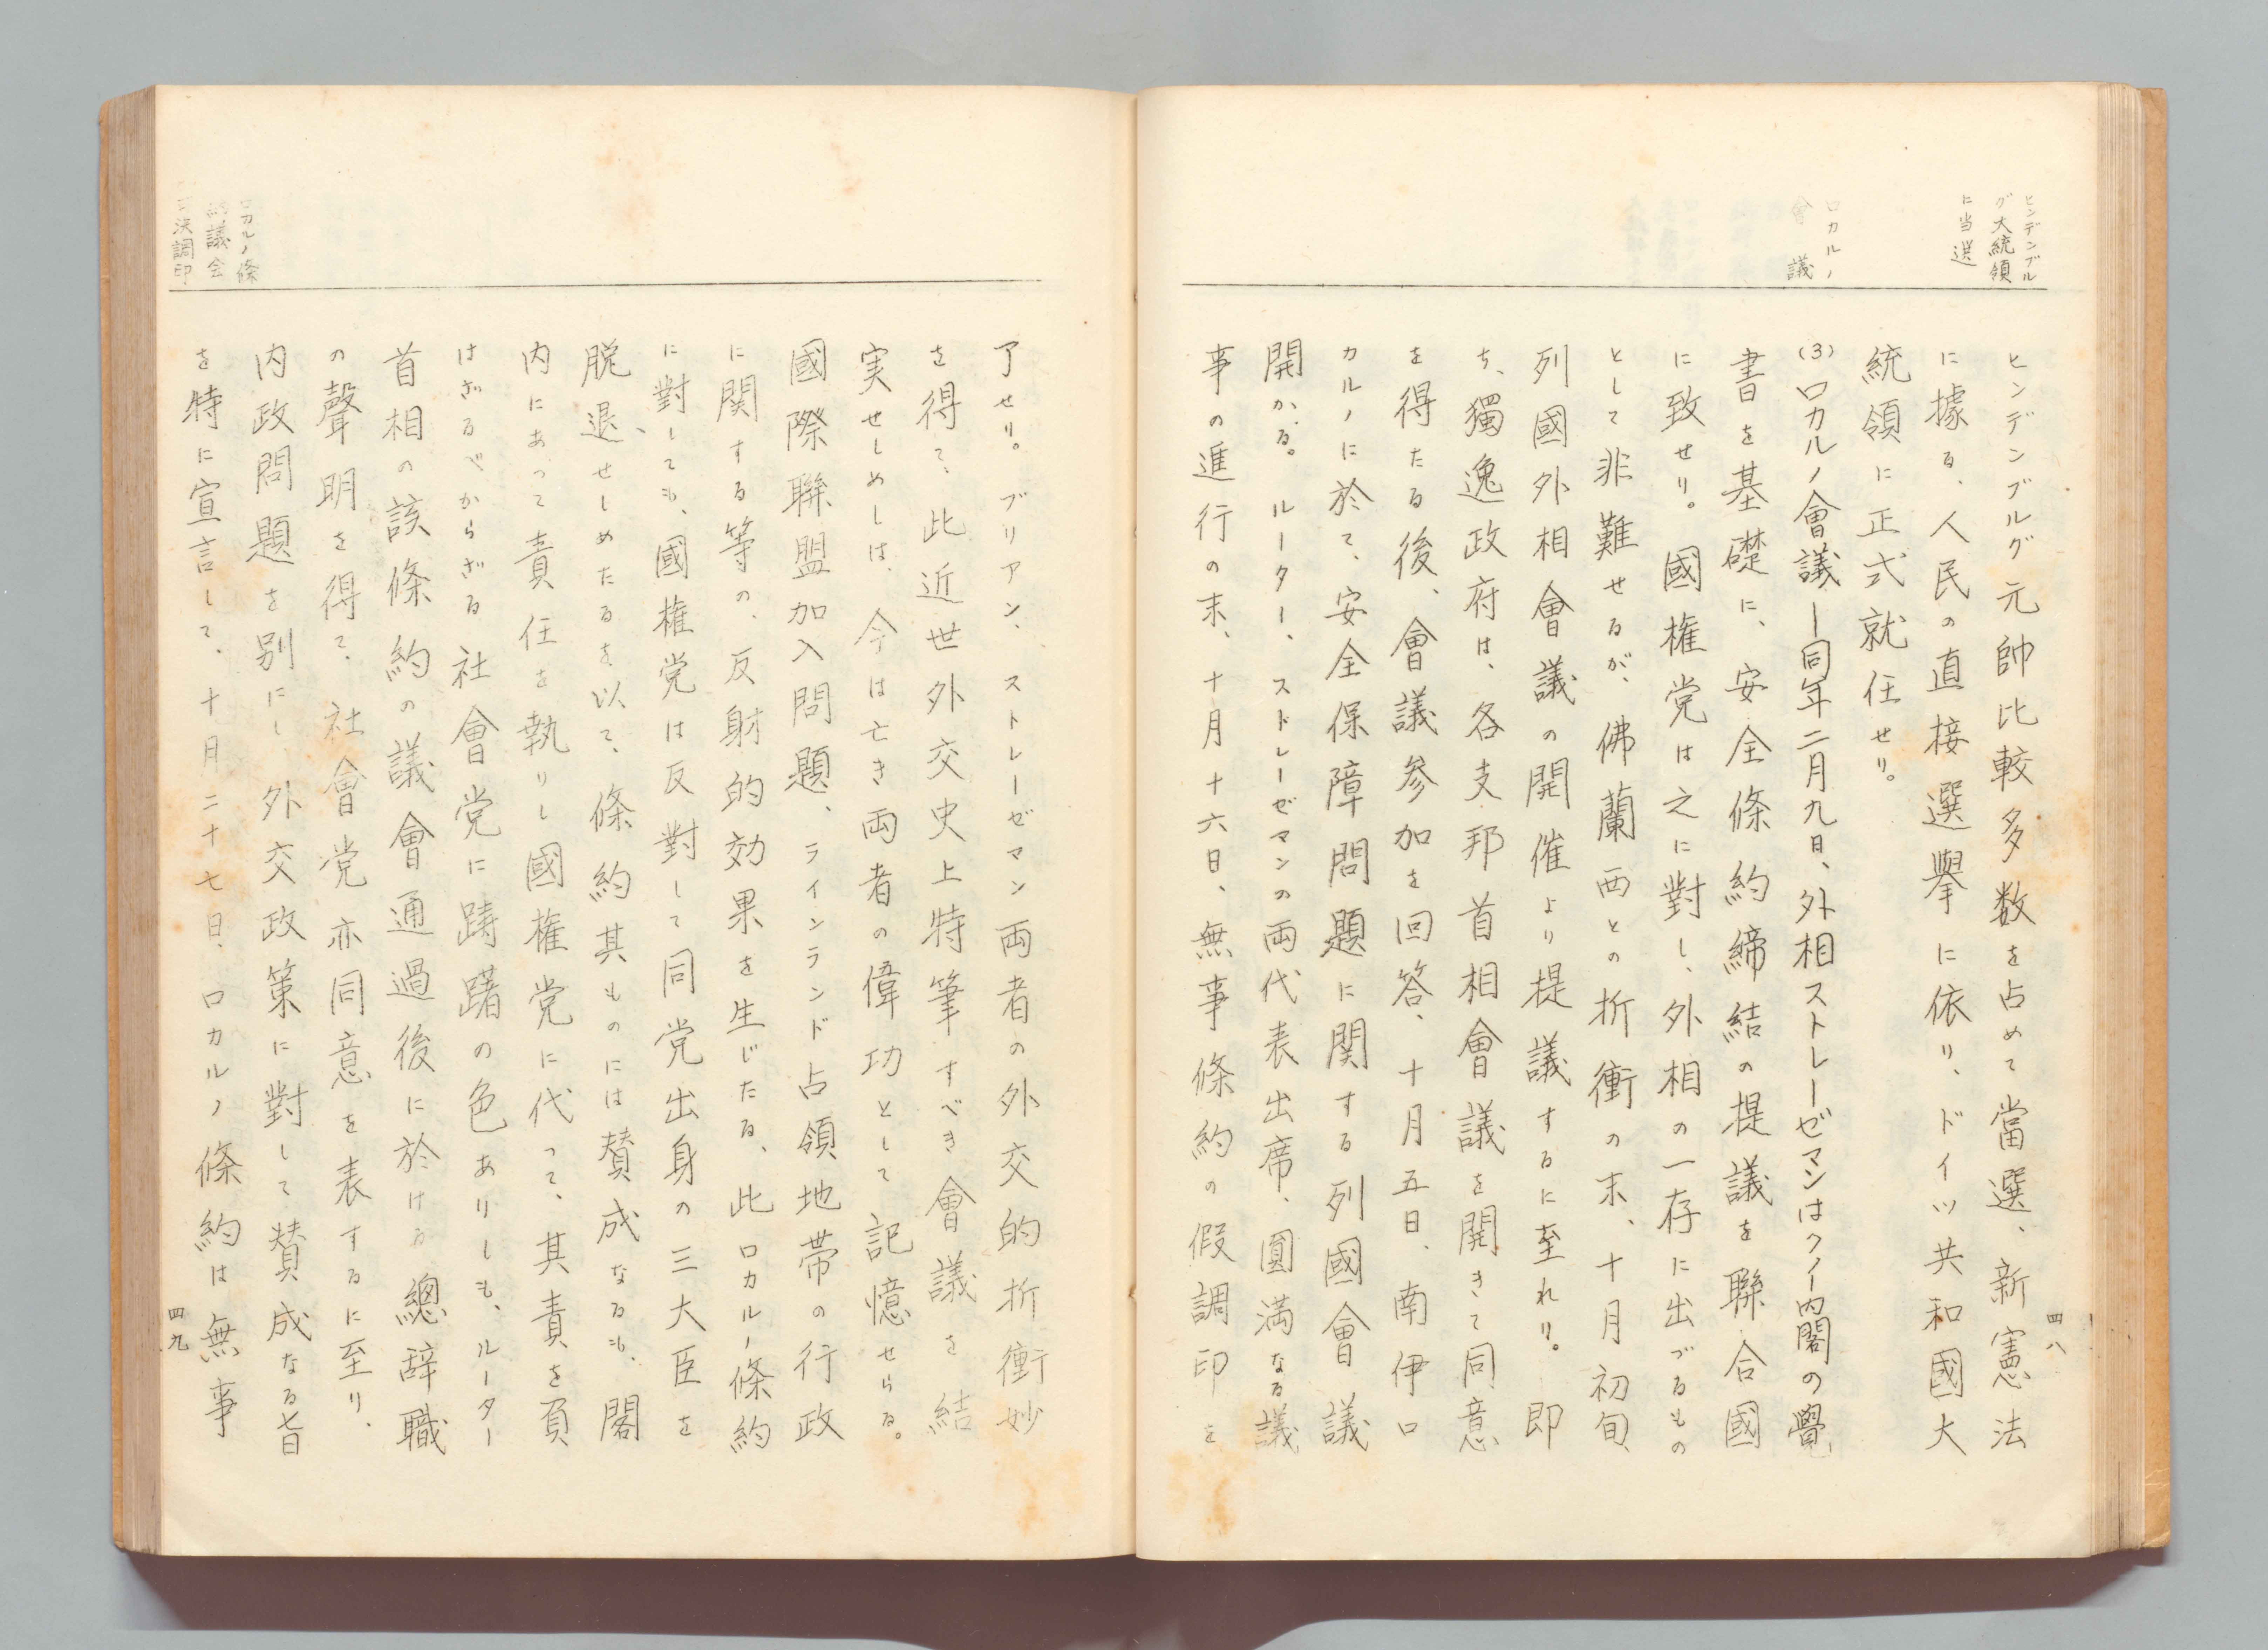 ヒンデンブル
グ大統領
に当選
ロカルノ
會議
ヒンデンブルグ元帥比較多数を占めて當選、新憲法
に據る、人民の直接選擧に依り、ドイツ共和國大
統領に正式就任せり。
(3)ロカルノ會議ー同年二月九日、外相ストレーゼマンはクノー内閣の覺
書を基礎に、安全條約締結の提議を聯合國
に致せり。國権党は之に對し、外相の一存に出づるもの
として非難せるが、佛蘭西との折衝の末、十月初旬、
列國外相會議の開催より提議するに至れり。即
ち、獨逸政府は、各支邦首相會議を開きて同意
を得たる後、會議参加を回答、十月五日、南伊ロ
カルノに於て、安全保障問題に関する列國會議
開かる。ルーター、ストレーゼマンの両代表出席、圓満なる議
事の進行の末、十月十六日、無事條約の假調印を
四八
ロカルノ條
約議会
可決調印
了せり。ブリアン、ストレーゼマン両者の外交的折衝妙
を得て、此近世外交史上特筆すべき會議を結
実せしめしは、今は亡き両者の偉功として記憶せらる。
國際聯盟加入問題、ラインランド占領地帯の行政
に関する等の、反射的効果を生じたる、此ロカルノ條約
に對しても、國権党は反對して同党出身の三大臣を
脱退せしめたるを以て、條約其ものには賛成なるも、閣
内にあって責任を執りし國権党に代って、其責を負
はざるべからざる社會党に躊躇の色ありしも、ルーター
首相の該條約の議會通過後に於ける總辞職
の聲明を得て、社會党亦同意を表するに至り、
内政問題を別にし、外交政策に對して賛成なる旨
を特に宣言して、十月二十七日、ロカルノ條約は無事
四九